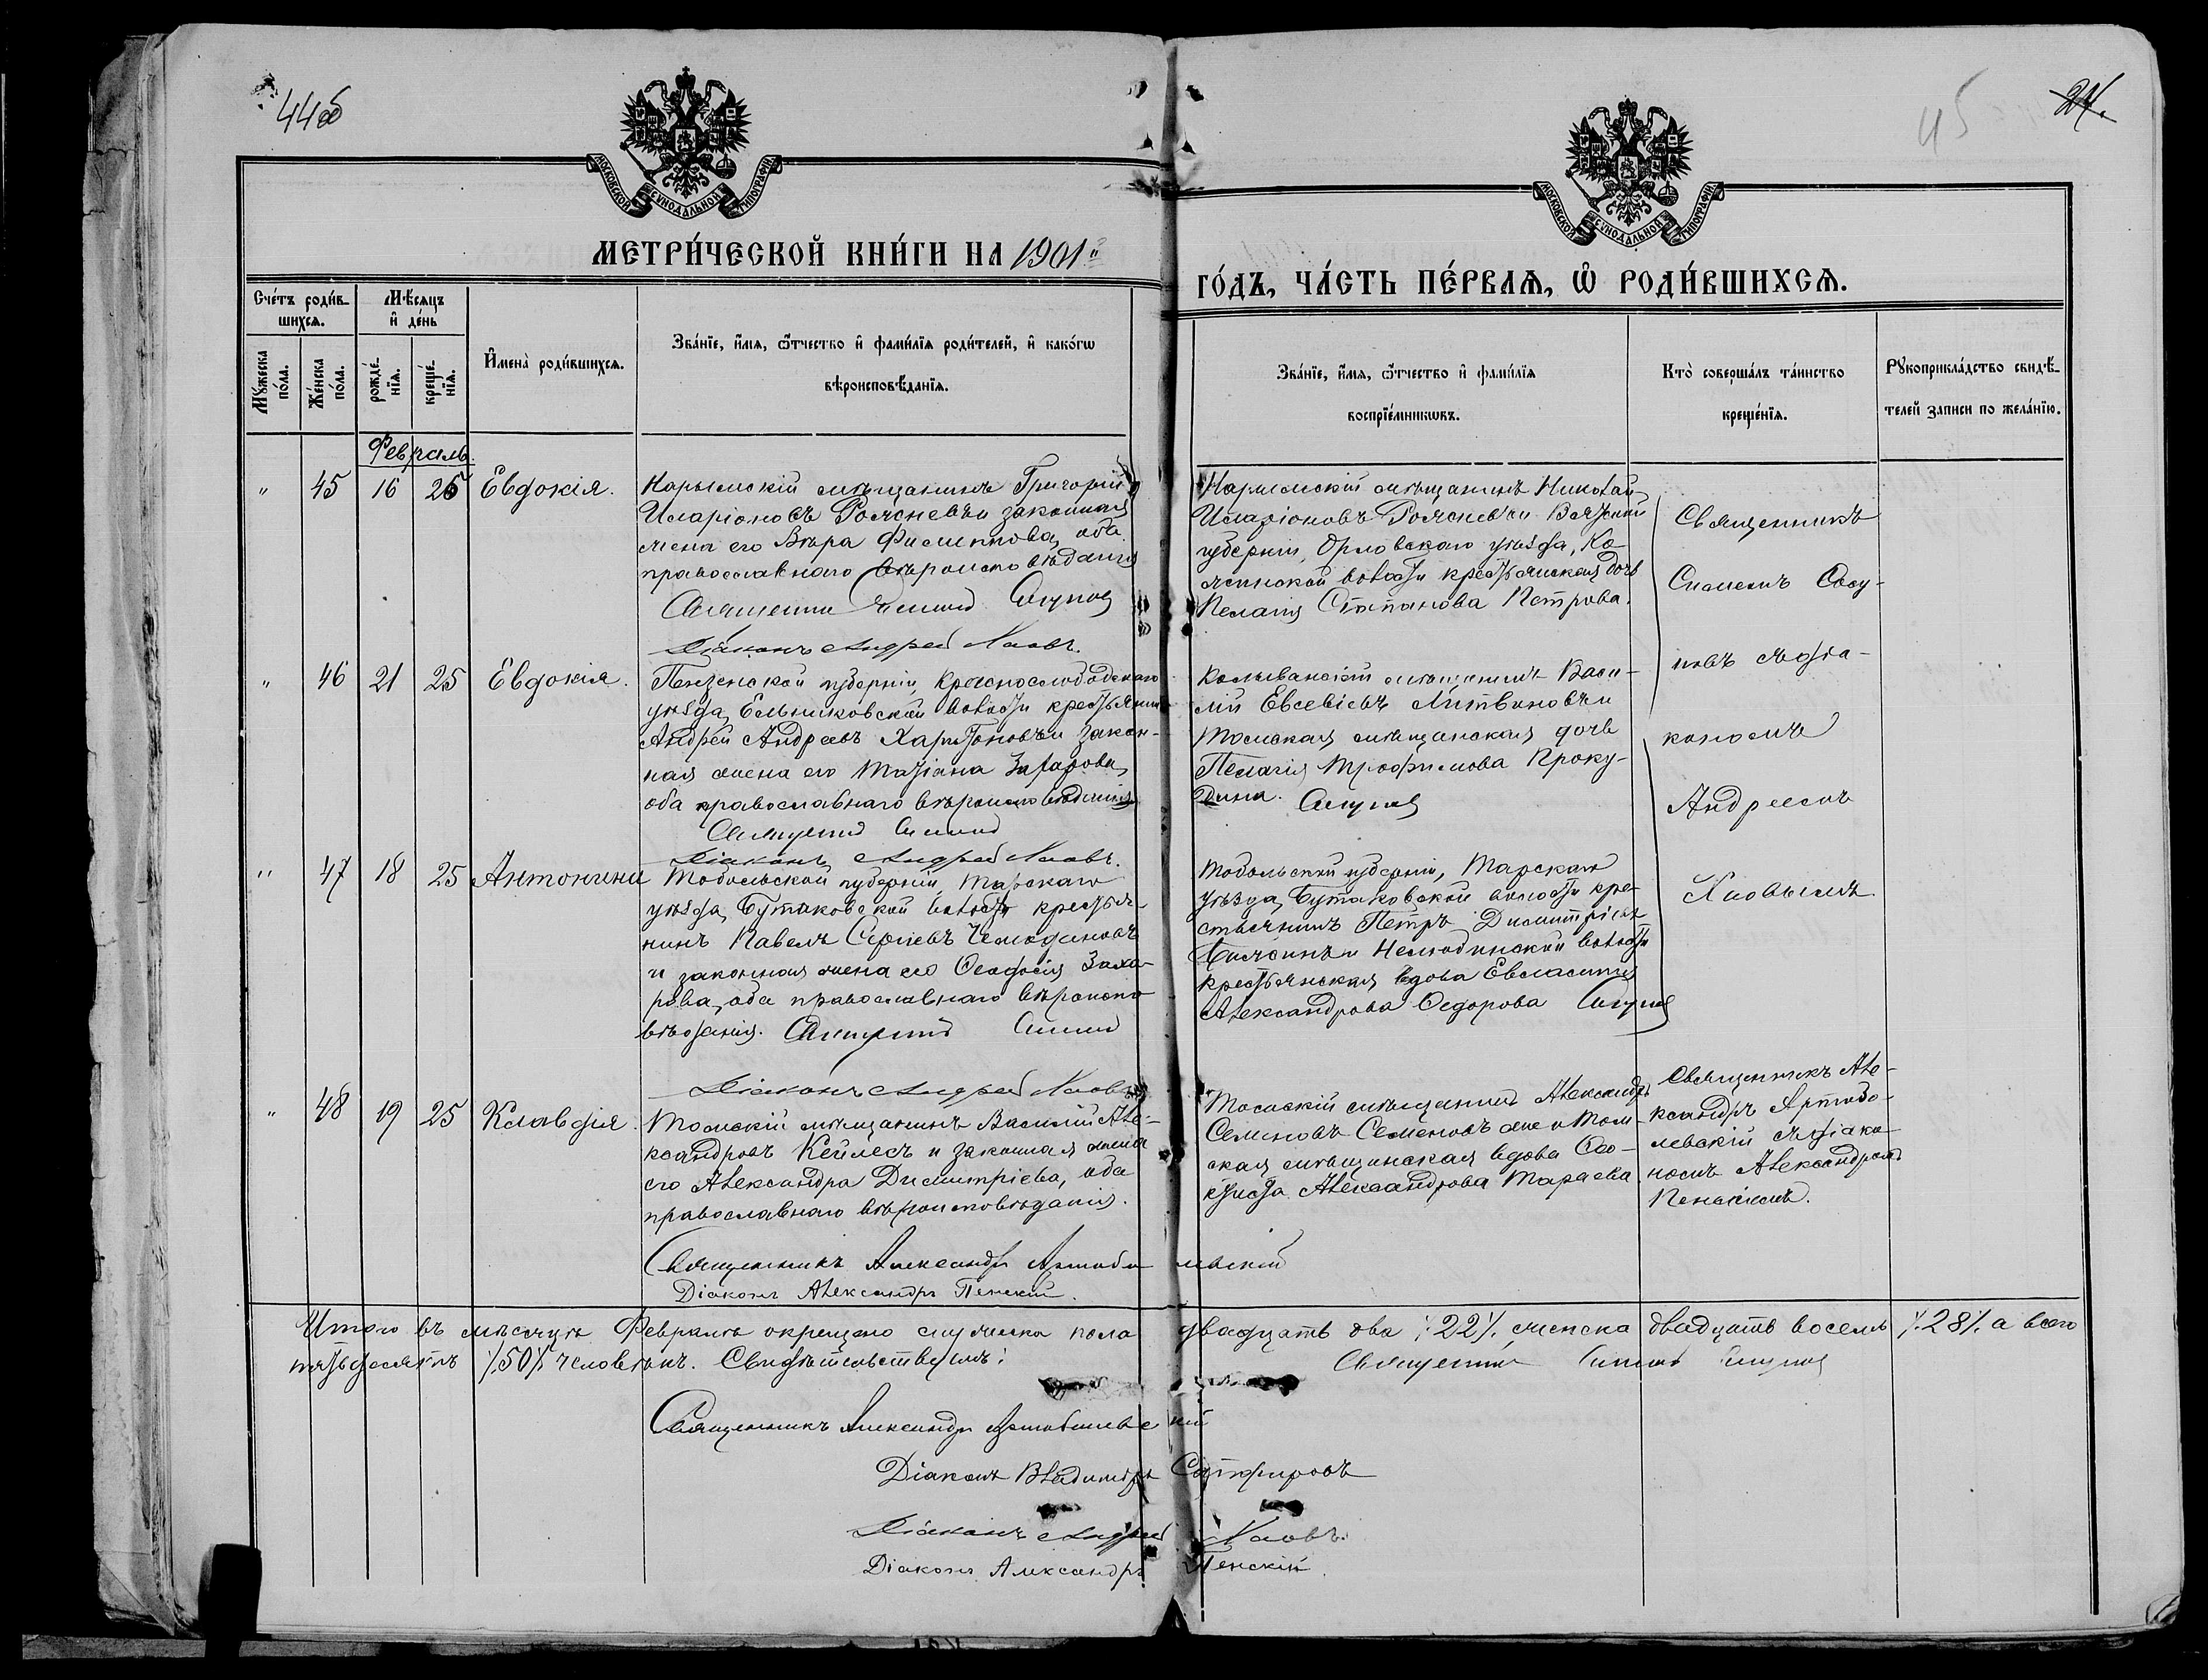 44об
45
24.
МОСКОВСКОЙ СѴНОДАЛЬНОЙ ТИПОГРАФІИ
МОСКОВСКОЙ СѴНОДАЛЬНОЙ ТИПОГРАФІИ
МЕТРИ́ЧЕСКОЙ КНИ́ГИ НА 1901й
ГО́ДЪ, ЧА́СТЬ ПЕ́РВАѦ, Ѽ РОДИ́ВШИХСѦ.
Сче́тъ роди́в-
шихсѧ.
Мꙋ́жеска
по́ла.
Же́нска
по́ла.
Мѣ́сѧцъ
и҆ де́нь
рожде́-
нїѧ.
креще́-
нїѧ.
И҆мена̀ роди́вшихсѧ.
Зва́нїе, и҆́мѧ, ѻ҆́тчество и҆ фами́лїѧ роди́телей, и҆ како́гѡ
вѣроисповѣ́данїѧ.
Зва́нїе, и҆́мѧ, ѻ҆́тчество и҆ фами́лїѧ
воспрїе́мникѡвъ.
Кто̀ соверша́лъ та́инство
креще́нїѧ.
Рꙋкоприкла́дство свидѣ́-
телей записи по жела́нїю.
Февраль.
" 45 16 25 Евдокія.
Нарымскій мѣщанинъ Григорій
Иларіоновъ и законная
жена его Вѣра Филиппова, оба
православнаго вѣроисповѣданія
Священникъ
Діаконъ Андрей
Нарымскій мѣщанинъ Николай
Иларіоновъ и Вятской
губерніи, Орловскаго уѣзда, Ко-
волости крестьянская дочь
Пелагія Стапанова Петрова.
Священникъ
-
новъ съ діа-
кономъ
Андреемъ
" 46 21 25 Евдокія.
Пензенской губерніи, Краснослободскаго
уѣзда, Ельниковской волости крестьянинъ
Андрей Андреевъ Харитоновъ и закон-
ная жена его Татіана Захарова,
оба православнаго вѣроисповѣданія
Священникъ
Діаконъ Андрей
Колыванскій мѣщанинъ Васи-
лій Евсевіевъ Литвиновъ и
Томская мѣщанская дочь
Пелагія Трофимова Проку-
дина.
" 47 18 25 Антонина
Тобольской губерніи, Тарскаго
уѣзда, Бутаковской волости крестья-
нинъ Павелъ Сергіевъ Чемодановъ
и законная жена его Ѳеодосія Заха-
рова, оба православнаго вѣроиспо-
вѣданія. Священникъ
Діаконъ Андрей
Тобольской губерніи, Тарскаго
уѣзда, Бутаковской волости кре-
стьянинъ Петръ Димитріевъ
и волости
крестьянская вдова Евлампія
Александрова Ѳедорова
" 48 19 25 Клавдія.
Томскій мѣщанинъ Василій Але-
ксандровъ Кейлесъ и законная жена
его Александра Димитріева, оба
православнаго вѣроисповѣданія.
Священникъ Александръ Артоболевскій
Діаконъ Александръ Пенскій.
Томскій мѣщанинъ Александръ
Семеновъ Семеновъ же и Том-
ская мѣщанская вдова
Александрова Тараева.
Священникъ Але-
ксандръ Артобо-
левскій съ діако-
номъ Александромъ
Пенскимъ.
Итого въ мѣсяцѣ Февралѣ окрещено мужеска пола двадцать два /.22/. женска двадцать восемь /.28/. а всего
пятьдесятъ /.50/. человѣкъ. Свидѣтельствуемъ:
Священникъ
Священникъ Александръ Артоболевскій
Діаконъ Владиміръ Сапфировъ
Діаконъ Андрей
Діаконъ Александръ Пенскій.